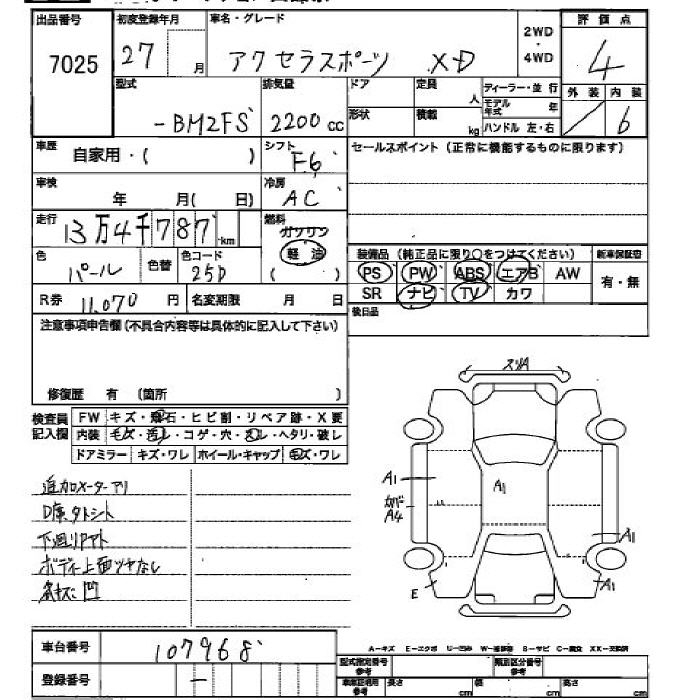 出品番号 初度登録年月 車名・グレード 2WD・4WD 評価点
7025 27 月 アクセラスポーツ XD 4
型式 排気量 ドア 定員 人 ディーラー・並行 外装 内装
-BM2FS 2200 cc 形状 積載 kg モデル年式 年 ハンドル 左・右 / 6
車歴 自家用・( ) シフト F6 セールスポイント(正常に機能するものに限ります)
車検 年 月( 日) 冷房 AC
走行 13万4千787 km 燃料 ガソリン 軽油 ( )
色 パール 色替 色コード 25D
装備品(純正品に限り○をつけてください) 新車保証書
PS PW ABS エアB AW 有・無
SR ナビ TV カワ
R券 11,070 円 名変期限 月 日 後日品
注意事項申告欄(不具合内容等は具体的に記入して下さい)
修復歴 有 (箇所 )
検査員記入欄 FW キズ・飛石・ヒビ割・リペア跡・X要
内装 キズ・汚レ・コゲ・穴・スレ・ヘタリ・破レ
ドアミラー キズ・ワレ ホイール・キャップ キズ・ワレ
追加メーターアリ
D席タトシート
下廻りサビ
ボディ上面ツヤなし
各キズ凹
スリA
A1
A1
カバー A4
A1
E
A1
車台番号 107968
登録番号 -
A-キズ E-エクボ U-凹み W-補修跡 S-サビ C-腐食 XX-交換済
型式指定番号 参考 類別区分番号 参考
車庫証明用 参考 長さ cm 幅 cm 高さ cm